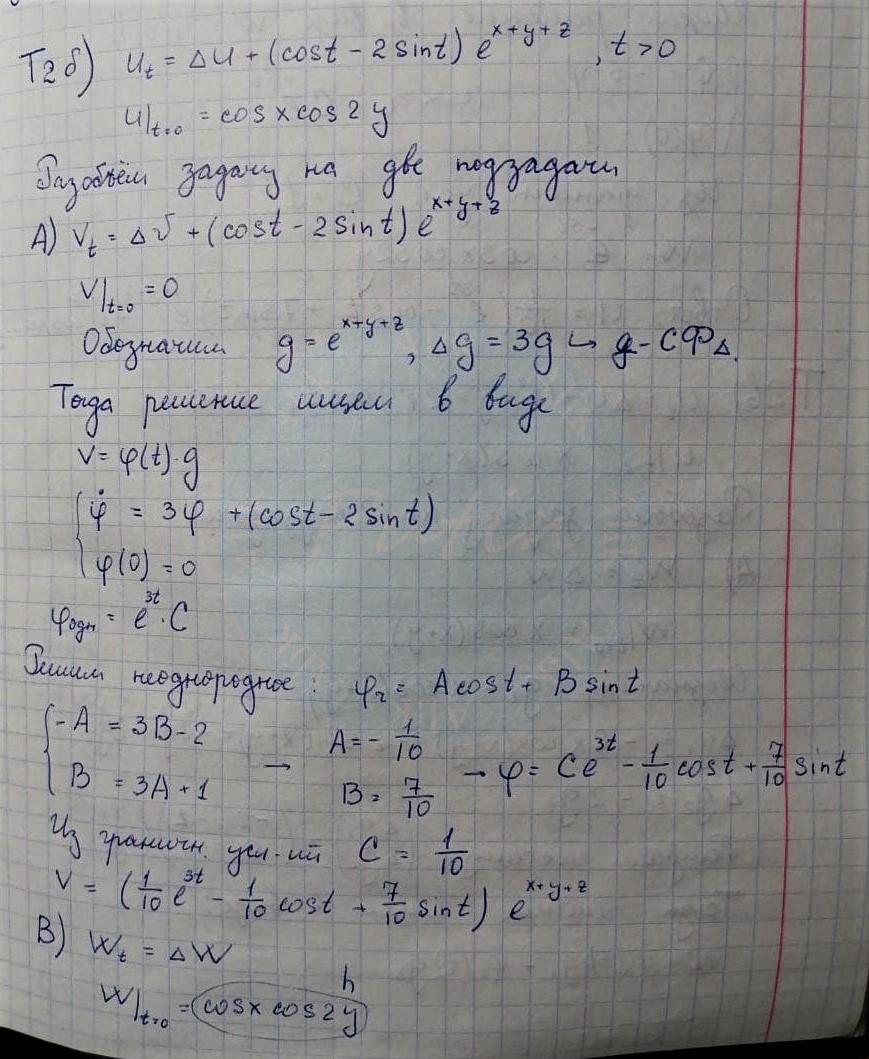 Т2 б) u_t = Δu + (cost - 2sint) e^{x+y+z}, t>0
u|_{t=0} = cosx cos2y
Разобьём задачу на две подзадачи
A) V_t = Δv + (cost - 2sint) e^{x+y+z}
V|_{t=0} = 0
Обозначим g = e^{x+y+z}, Δg = 3g ↪ g - СФ_Δ.
Тогда решение ищем в виде
V = φ(t)·g
{ φ̇ = 3φ + (cost - 2sint)
φ(0) = 0
φ_{одн} = e^{3t}·C
Решим неоднородное: φ_r = Acost + Bsint
{ -A = 3B - 2
B = 3A + 1
→ A = -1/10
B = 7/10
→ φ = Ce^{3t} - 1/10 cost + 7/10 sint
Из граничн. усл-ий C = 1/10
V = (1/10 e^{3t} - 1/10 cost + 7/10 sint) e^{x+y+z}
B) W_t = ΔW
h
W|_{t=0} = cosx cos2y